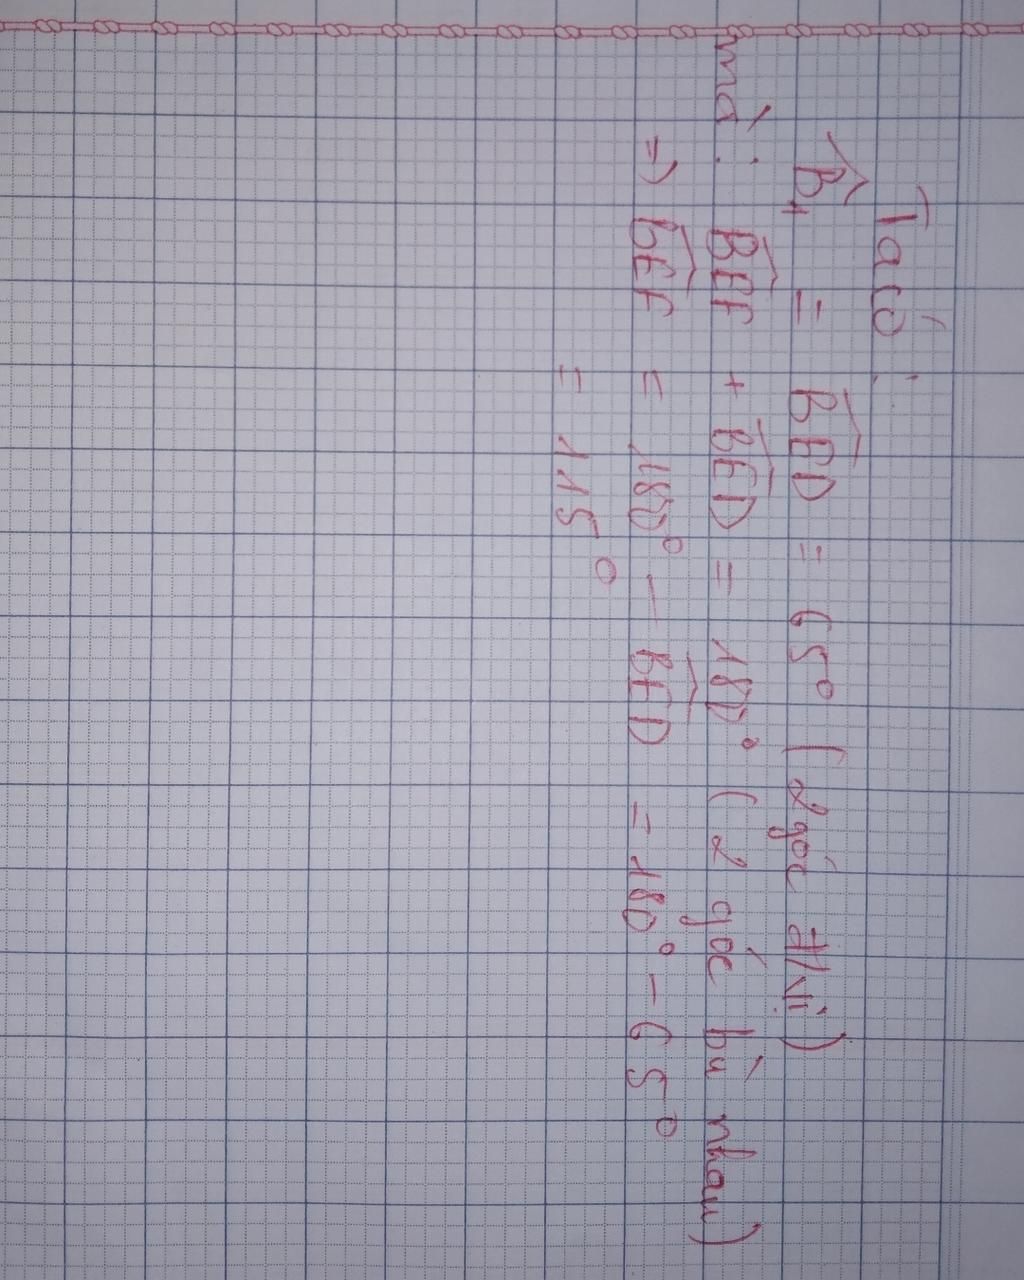 Ta có :
B̂₁ = B͡ED = 65° ( 2 góc đ/vị )
mà : B͡EF + B͡ED = 180° ( 2 góc bù nhau )
=> B͡EF = 180° - B͡ED = 180° - 65°
= 115°